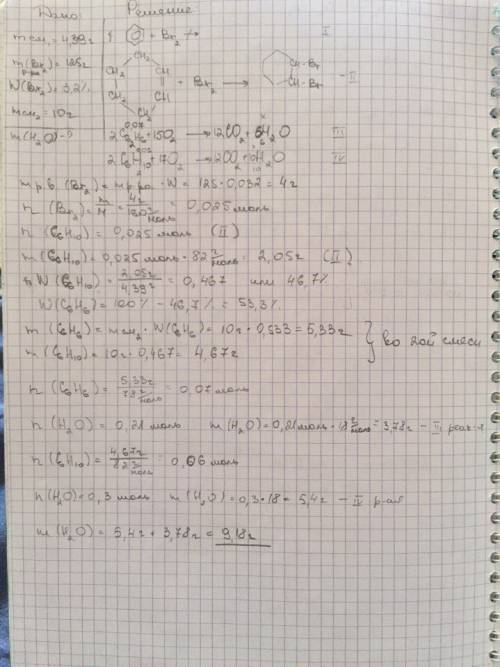 Дано Решение
m см₁ = 4,39г
+ Br₂ ↛ I
m(Br₂) р-ра = 125г
W(Br₂) = 3,2%
CH₂ CH₂ CH CH CH₂ CH₂ + Br₂ → CH-Br CH-Br - II
m см₂ = 10г
m(H₂O) - ?
0,07 x
2C₆H₆ + 15O₂ → 12CO₂ + 6H₂O III
2 6
2C₆H₁₀ + 17O₂ → 12CO₂ + 10H₂O IV
2 10
m р.в. (Br₂) = m р.ра · W = 125 · 0,032 = 4г
n (Br₂) = m/M = 4г / 160 г/моль = 0,025 моль
n (C₆H₁₀) = 0,025 моль (II)
m(C₆H₁₀) = 0,025 моль · 82 г/моль = 2,05г (II)
W (C₆H₁₀) = 2,05г / 4,39г = 0,467 или 46,7%
W(C₆H₆) = 100% - 46,7% = 53,3%
m (C₆H₆) = m см₂ · W(C₆H₆) = 10г · 0,533 = 5,33г } во 2ой смеси
m (C₆H₁₀) = 10г · 0,467 = 4,67г
n (C₆H₆) = 5,33г / 78 г/моль = 0,07 моль
n (H₂O) = 0,21 моль m(H₂O) = 0,21 моль · 18 г/моль = 3,78г - III реак-я
n (C₆H₁₀) = 4,67г / 82 г/моль = 0,06 моль
n(H₂O) = 0,3 моль m (H₂O) = 0,3 · 18 = 5,4г - IV р-ая
m (H₂O) = 5,4г + 3,78г = 9,18г